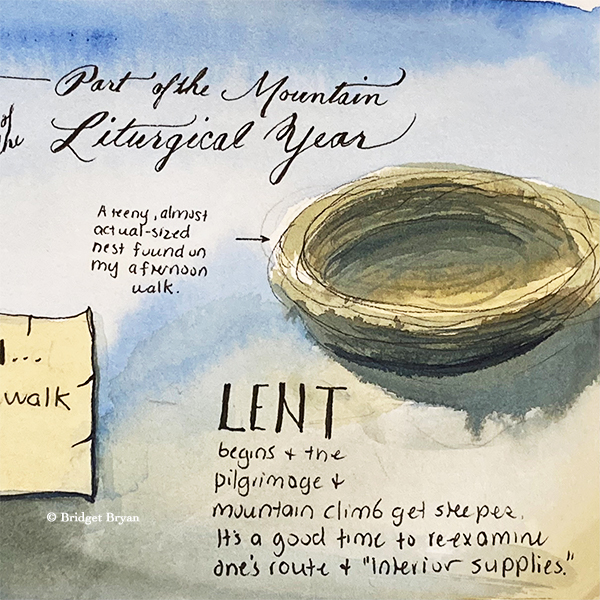 Part of the Mountain
of the
Liturgical Year
A teeny, almost
actual-sized
nest found on
my afternoon
walk.
...
walk
LENT
begins + the
pilgrimage +
mountain climb get steeper.
It's a good time to re-examine
one's route + "Interior supplies."
© Bridget Bryan